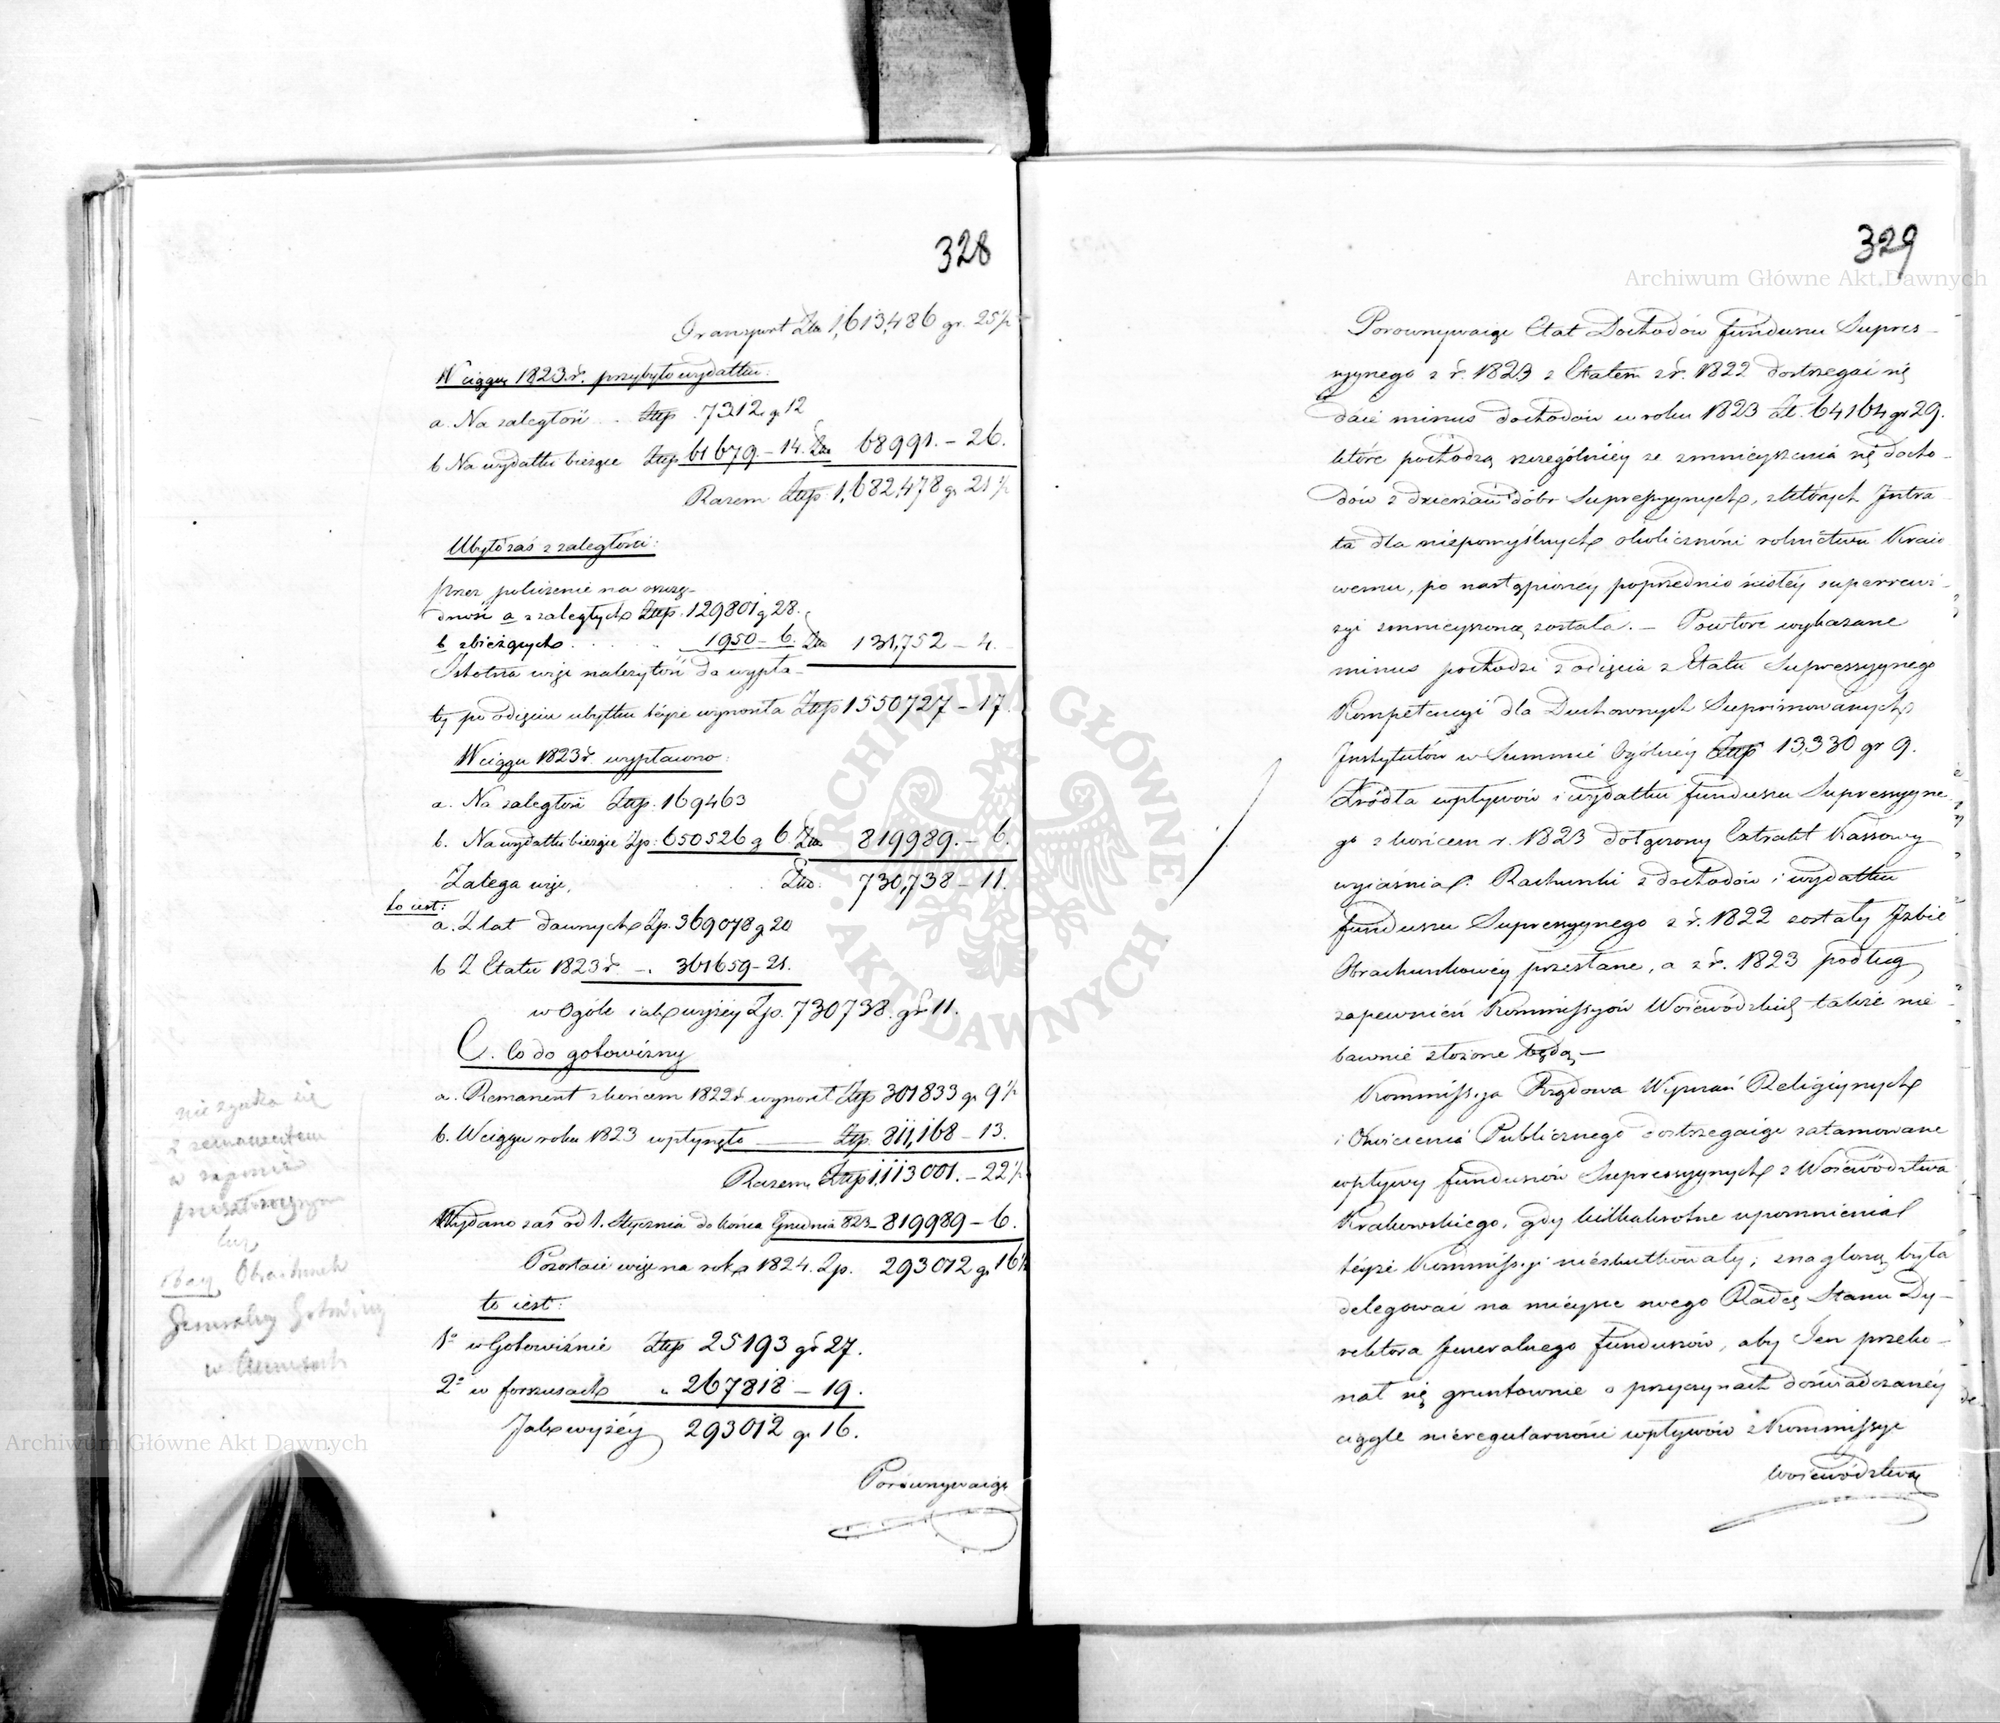 328
Transport Złp 1,613,486 gr. 25½
W ciągu 1823 r. przybyło wydatku:
a. Na zaległość .. Złp. 7312 g 12
b Na wydatki bieżące Złp 61679.-14. Złp 68991.-26.
Razem Złp. 1,682,478 gr 21½
Ubyło zaś z zaległości:
przez położenie na oszczę-
dność a zaległych Złp. 129801 g 28.
b z bieżących . . . . „ 1950-6. Złp 131,752-4.
Istotna więc należytość do wypła-
ty po odjęciu ubytku teyże wynosiła Złp 1550727-17.
W ciągu 1823 r. wypłacono:
a. Na zaległość Złp. 169463
b. Na wydatki bieżące Zp. 650526 g 6. Złp 819989.-6.
Zalega więc, . . Złp. 730,738-11.
to iest:
a. Z lat dawnych Zp. 369078 g 20
b Z Etatu 1823 r. -. 361659-21.
w Ogóle iak wyżéy Zp. 730738. gr 11.
C. Co do gotowizny
a. Remanent z końcem 1822 r. wynosił Złp 301833 gr 9½
b. W ciągu roku 1823 wpłynęło — Złp. 811,168-13.
Razem Złp 1,113001.-22½
Wydano zaś od 1. Stycznia do końca Grudnia 823-819989-6.
Pozostaie więc na rok 1824. Zp. 293012 gr 16½
to iest:
1o w Gotowiźnie Złp 25193 gr 27.
2o w forszusach „ 267818-19.
Jak wyżéy 293012 gr 16.
Porównywaiąc
nie zgadza się
z remanentem
w raporcie
Obrachunek
Generalny Gotowizny
329
Porównywaiąc Etat Dochodów funduszu Supres-
syynego z r. 1823 z Etatem z r. 1822 dostrzegać się
daie minus dochodów w roku 1823 Zł. 64164 gr 29.
które pochodzą szczególniéy ze zmnieyszenia się docho-
dów z dzierżaw dóbr Supressyynych, z których Intra-
ta dla niepomyślnych okoliczności rolnictwu Kraio-
wemu, po nastąpionéy poprzednio ścisłéy superrewi-
zyi zmnieyszoną została. - Powtóre wykazane
minus pochodzi z odięcia z Etatu Supressyynego
Kompetencyi dla Duchownych Suprimowanych
Instytutów w Summie Ogólnéy Złp 13,330 gr 9.
Źródła wpływów i wydatku funduszu Supressyyne-
go z końcem r. 1823 dołączony Extrakt Kassowy
wyiaśnia. Rachunki z dochodów i wydatku
funduszu Supressyynego z r. 1822 zostały Izbie
Obrachunkowéy przesłane, a z r. 1823 podług
zapewnień Kommissyów Woiewódzkich także nie-
bawnie złożone będą -
Kommissya Rządowa Wyznań Religiynych
i Oświecenia Publicznego dostrzegaiąc zatamowane
wpływy funduszów Supressyynych z Woiewództwa
Krakowskiego, gdy kilkakrotne upomnienia
teyże Kommissyi nieskutkowały; znagloną była
delegować na mieysce swego Radcę Stanu Dy-
rektora Generalnego Funduszów, aby Ten przeko-
nał się gruntownie o przyczynach doświadczanéy
ciągle nieregularności wpływów z Kommissyi
Woiewództwa
Archiwum Główne Akt Dawnych
Archiwum Główne Akt Dawnych
ARCHIWUM GŁÓWNE AKT DAWNYCH